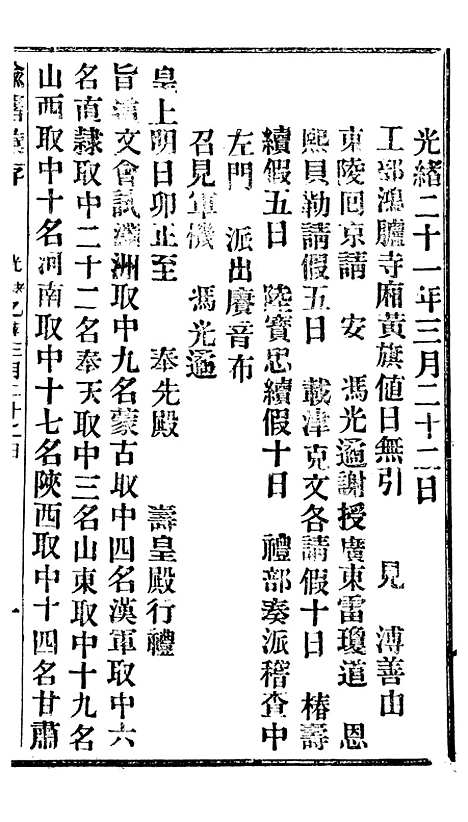 光緒二十一年三月二十二日
工部鴻臚寺廂黃旗値日無引　見　溥善由
東陵回京請　安　馮光遹謝授廣東雷瓊道　恩
熙貝勒請假五日　載津克文各請假十日　椿壽
續假五日　陸寶忠續假十日　禮部奏派稽查中
左門　派出賡音布
召見軍機　馮光遹
皇上明日卯正至　奉先殿　壽皇殿行禮
旨滿文會試滿洲取中九名蒙古取中四名漢軍取中六
名直隸取中二十二名奉天取中三名山東取中十九名
山西取中十名河南取中十七名陝西取中十四名甘肅
諭摺彙存　光緒乙未三月二十二日　一